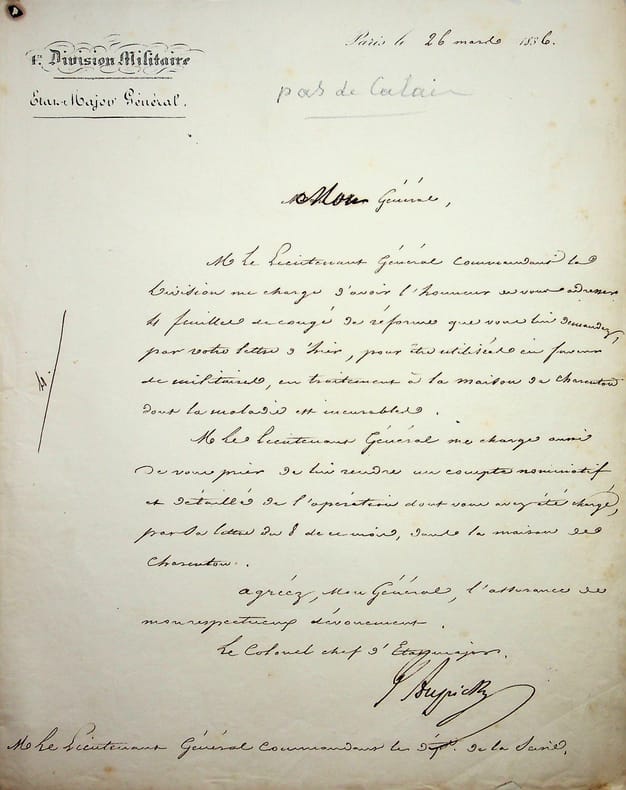 Paris le 26 mars 1836.
1re Division Militaire
Etat-Major Général.
pas de Calais
Mon Général,
M. le Lieutenant Général Commandant la
Division me charge d'avoir l'honneur de vous adresser
4 feuilles de congé de réforme que vous lui demandez,
par votre lettre d'hier, pour être utilisées en faveur
de militaires, en traitement à la maison de charenton
dont la maladie est incurable.
4.
M. le Lieutenant Général me charge aussi
de vous prier de lui rendre un compte nominatif
et détaillé de l'opération dont vous avez été chargé,
par sa lettre du 8 de ce mois, dans la maison de
Charenton.
agréez, Mon Général, l'assurance de
mon respectueux dévouement.
Le Colonel chef d'Etat major.
Aupick
M. le Lieutenant Général Commandant le dépt. de la Seine.